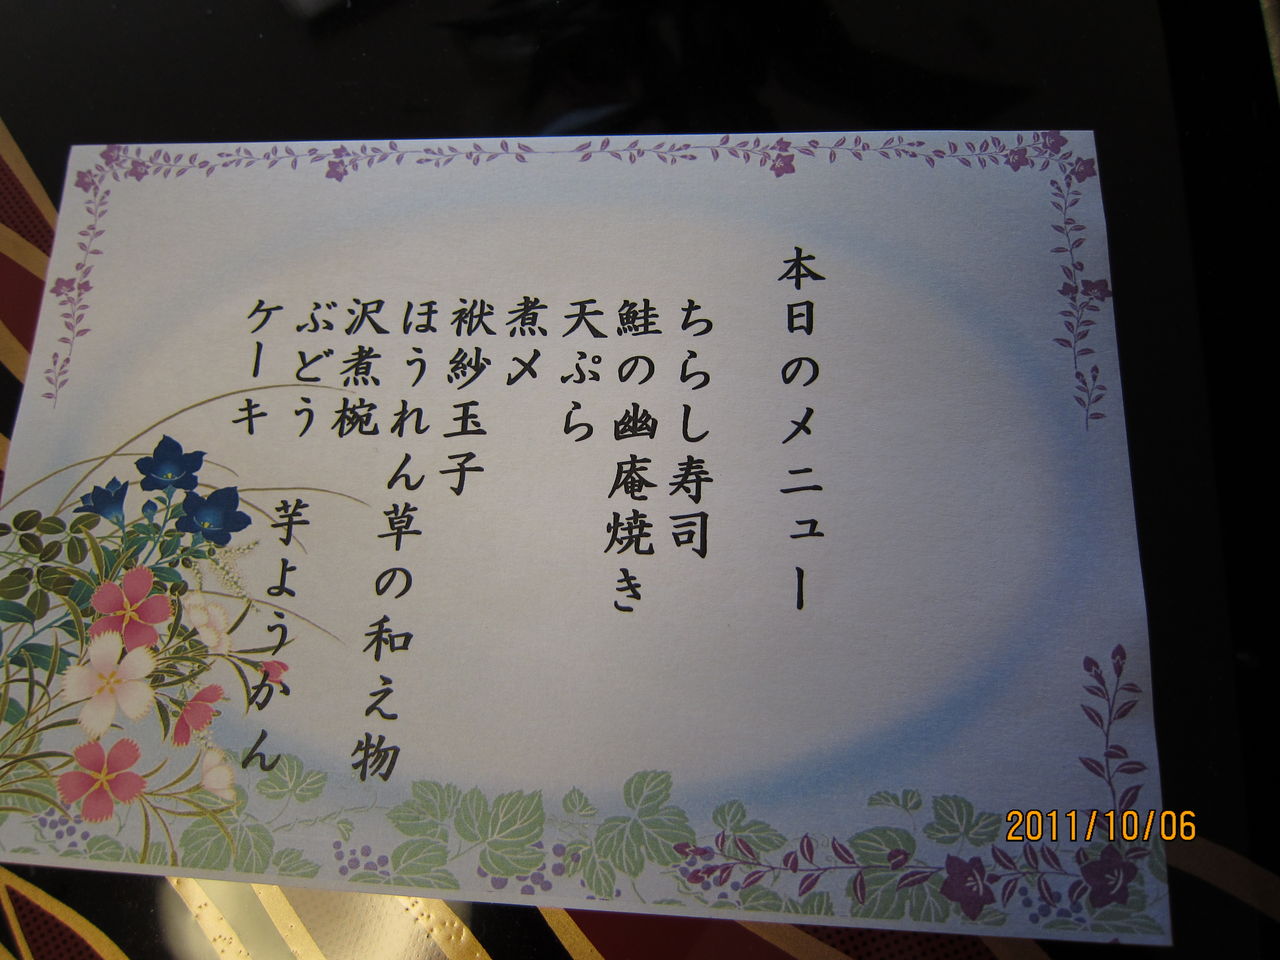 本日のメニュー
ちらし寿司
鮭の幽庵焼き
天ぷら
煮〆
袱紗玉子
ほうれん草の和え物
沢煮椀
ぶどう　芋ようかん
ケーキ
2011/10/06